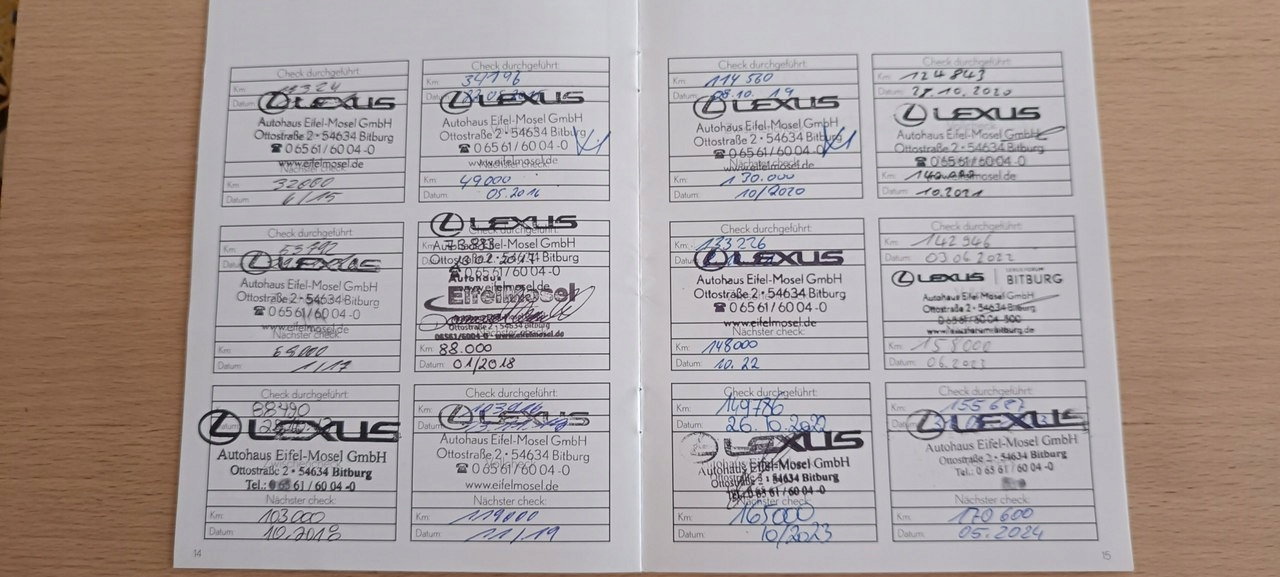 Check durchgeführt:
Km:
Datum:
LEXUS
Autohaus Eifel-Mosel GmbH
Ottostraße 2 • 54634 Bitburg
☎ 0 65 61 / 60 04 -0
www.eifelmosel.de
Nächster check:
Km:
Datum: 6/15
Check durchgeführt:
Km: 34196
Datum:
LEXUS
Autohaus Eifel-Mosel GmbH
Ottostraße 2 • 54634 Bitburg
☎ 0 65 61 / 60 04 -0
www.eifelmosel.de
Km: 49.000
Datum: 05.2016
Check durchgeführt:
Km:
LEXUS
Autohaus Eifel-Mosel GmbH
Ottostraße 2 • 54634 Bitburg
☎ 0 65 61 / 60 04 -0
www.eifelmosel.de
Nächster check:
Km:
Datum: 1/17
LEXUS
Check durchgeführt:
Km: 73833
Autohaus Eifel-Mosel GmbH
☎ 0 65 61 / 60 04 -0
www.eifelmosel.de
Autohaus
Eifelmosel
Ottostraße 2 • 54634 Bitburg
06561/6004-0 • www.eifelmosel.de
Km: 88.000
Datum: 01/2018
Check durchgeführt:
88490
LEXUS
Autohaus Eifel-Mosel GmbH
Ottostraße 2 • 54634 Bitburg
Tel.: 0 65 61 / 60 04 -0
Nächster check:
Km: 103000
Datum: 10.2018
Check durchgeführt:
Km:
LEXUS
Autohaus Eifel-Mosel GmbH
Ottostraße 2 • 54634 Bitburg
☎ 0 65 61 / 60 04 -0
www.eifelmosel.de
Nächster check:
Km: 119000
Datum: 11/19
14
Check durchgeführt:
Km: 114 560
Datum: 08.10.19
LEXUS
Autohaus Eifel-Mosel GmbH
Ottostraße 2 • 54634 Bitburg
☎ 0 65 61 / 60 04 -0
www.eifelmosel.de
Nächster check:
Km: 130.000
Datum: 10/2020
Check durchgeführt:
Km: 124 843
Datum: 27.10.2020
LEXUS
Autohaus Eifel-Mosel GmbH
Ottostraße 2 • 54634 Bitburg
☎ 0 65 61 / 60 04 -0
www.eifelmosel.de
Km: 140.000
Datum: 10.2021
Check durchgeführt:
Km: 133 226
LEXUS
Autohaus Eifel-Mosel GmbH
Ottostraße 2 • 54634 Bitburg
☎ 0 65 61 / 60 04 -0
www.eifelmosel.de
Nächster check:
Km: 148000
Datum: 10.22
Check durchgeführt:
Km: 142946
Datum: 03.06.2022
LEXUS LEXUS FORUM BITBURG
Autohaus Eifel Mosel GmbH
Ottostraße 2 • 54634 Bitburg
Nächster check:
Km: 158000
Datum: 06.2023
Check durchgeführt:
Km: 149786
Datum: 26.10.2022
LEXUS
Autohaus Eifel-Mosel GmbH
Ottostraße 2 • 54634 Bitburg
Tel.: 0 65 61 / 60 04 -0
Nächster check:
Km: 165000
Datum: 10/2023
Check durchgeführt:
Km:
Datum:
LEXUS
Autohaus Eifel-Mosel GmbH
Ottostraße 2 • 54634 Bitburg
Tel.: 0 65 61 / 60 04 -0
Nächster check:
Km: 170 600
Datum: 05.2024
15